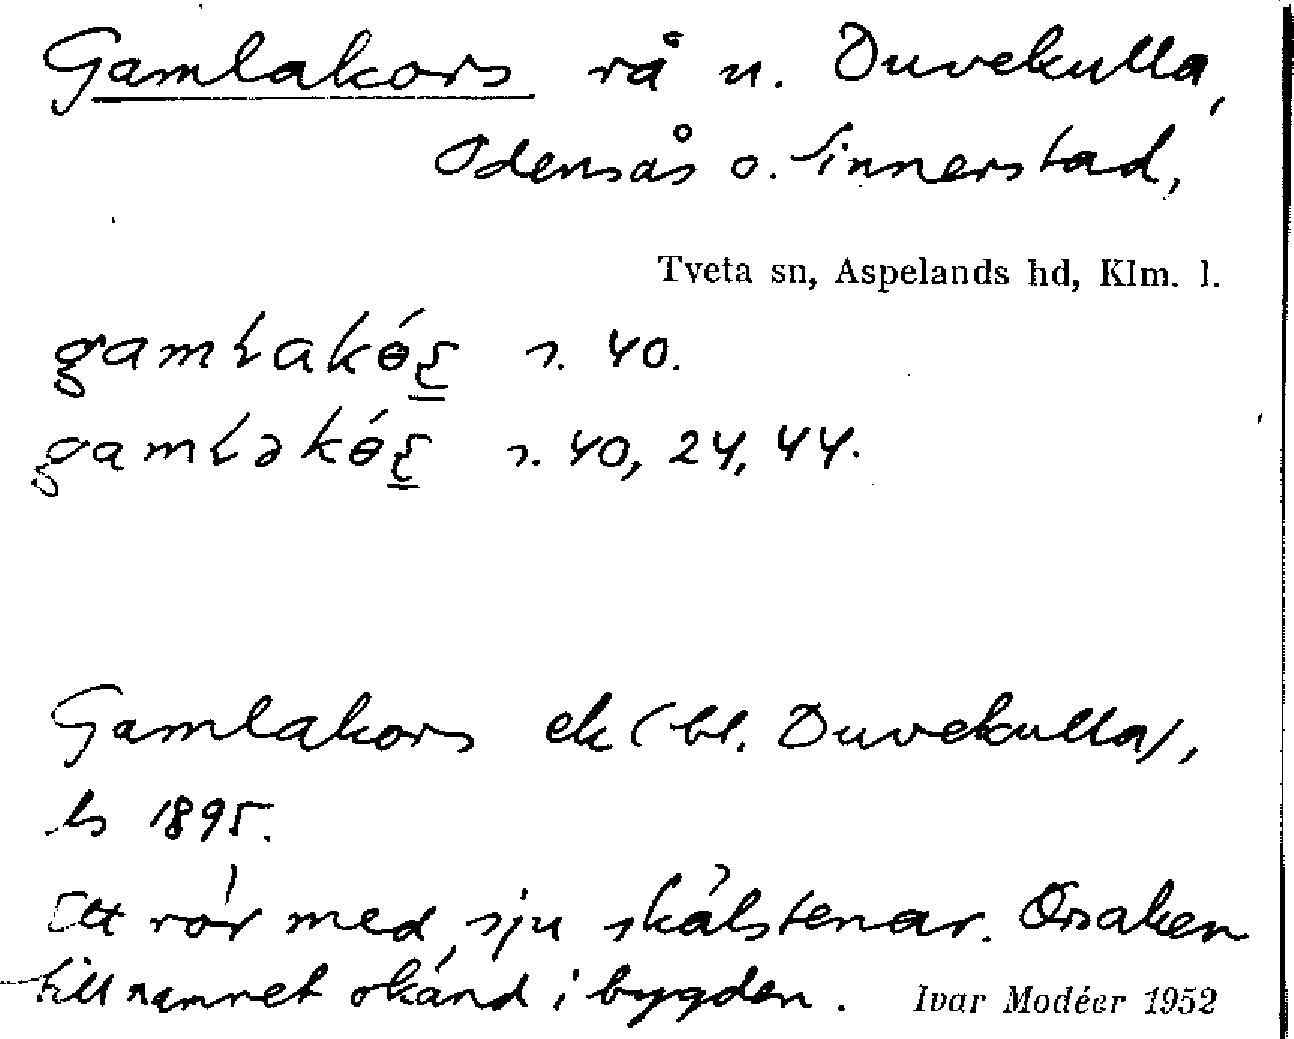 Gamlakors rå n. Duvekulla,
Odensås o. Sinnerstad,
Tveta sn, Aspelands hd, Klm. l.
s. 40.
s. 40, 24, 44.
Gamlakors ek (bl. Duvekulla),
ls 1895.
Ett rör med sju skålstenar. Orsaken
till namnet okänd i bygden.
Ivar Modéer 1952